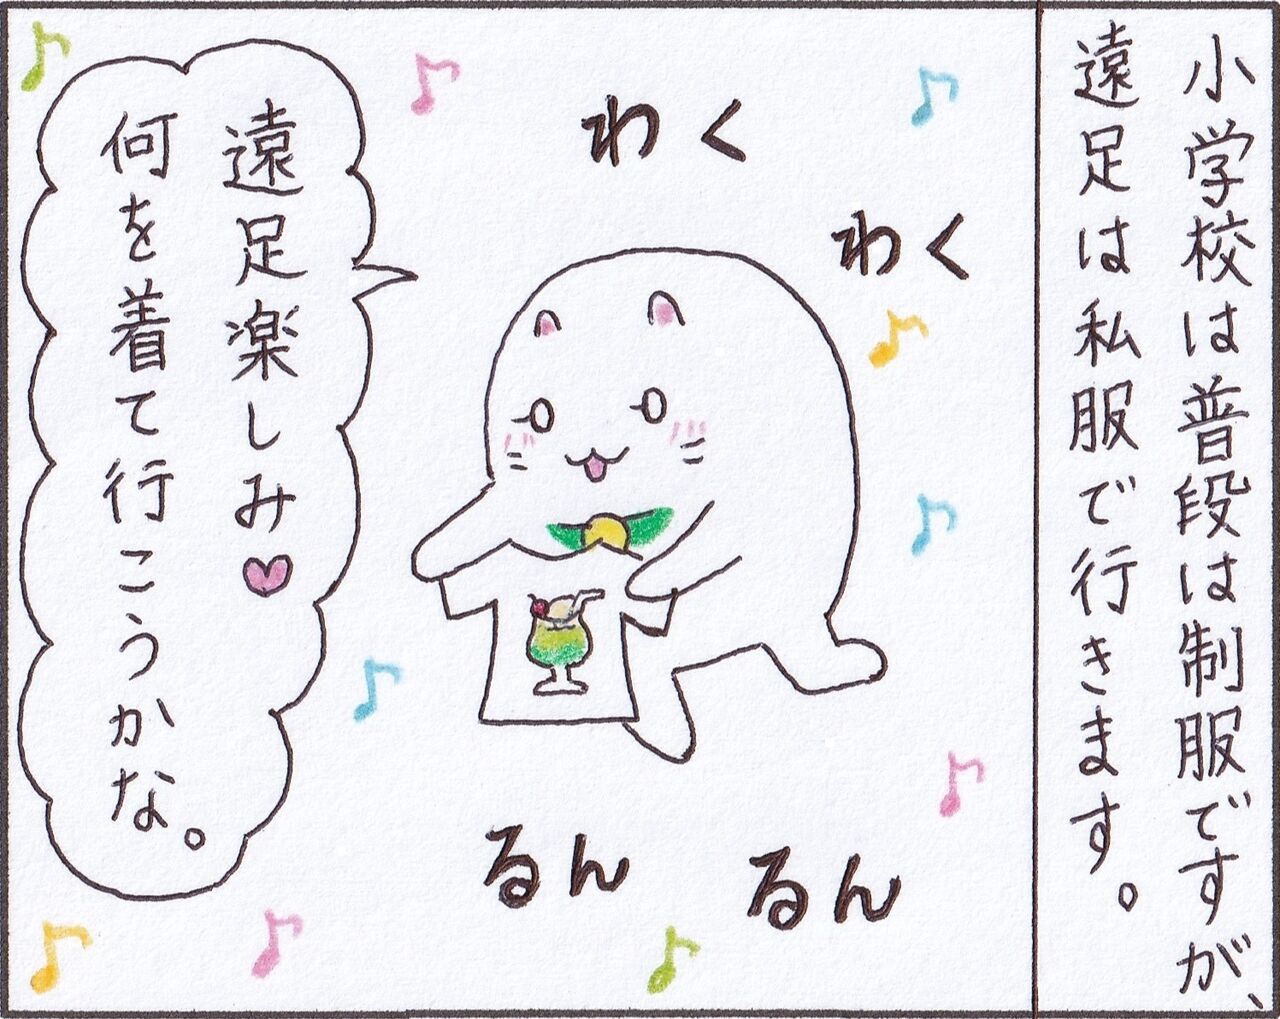 小学校は普段は制服ですが、
遠足は私服で行きます。
わく
わく
遠足楽しみ♥
何を着て行こうかな。
るん
るん